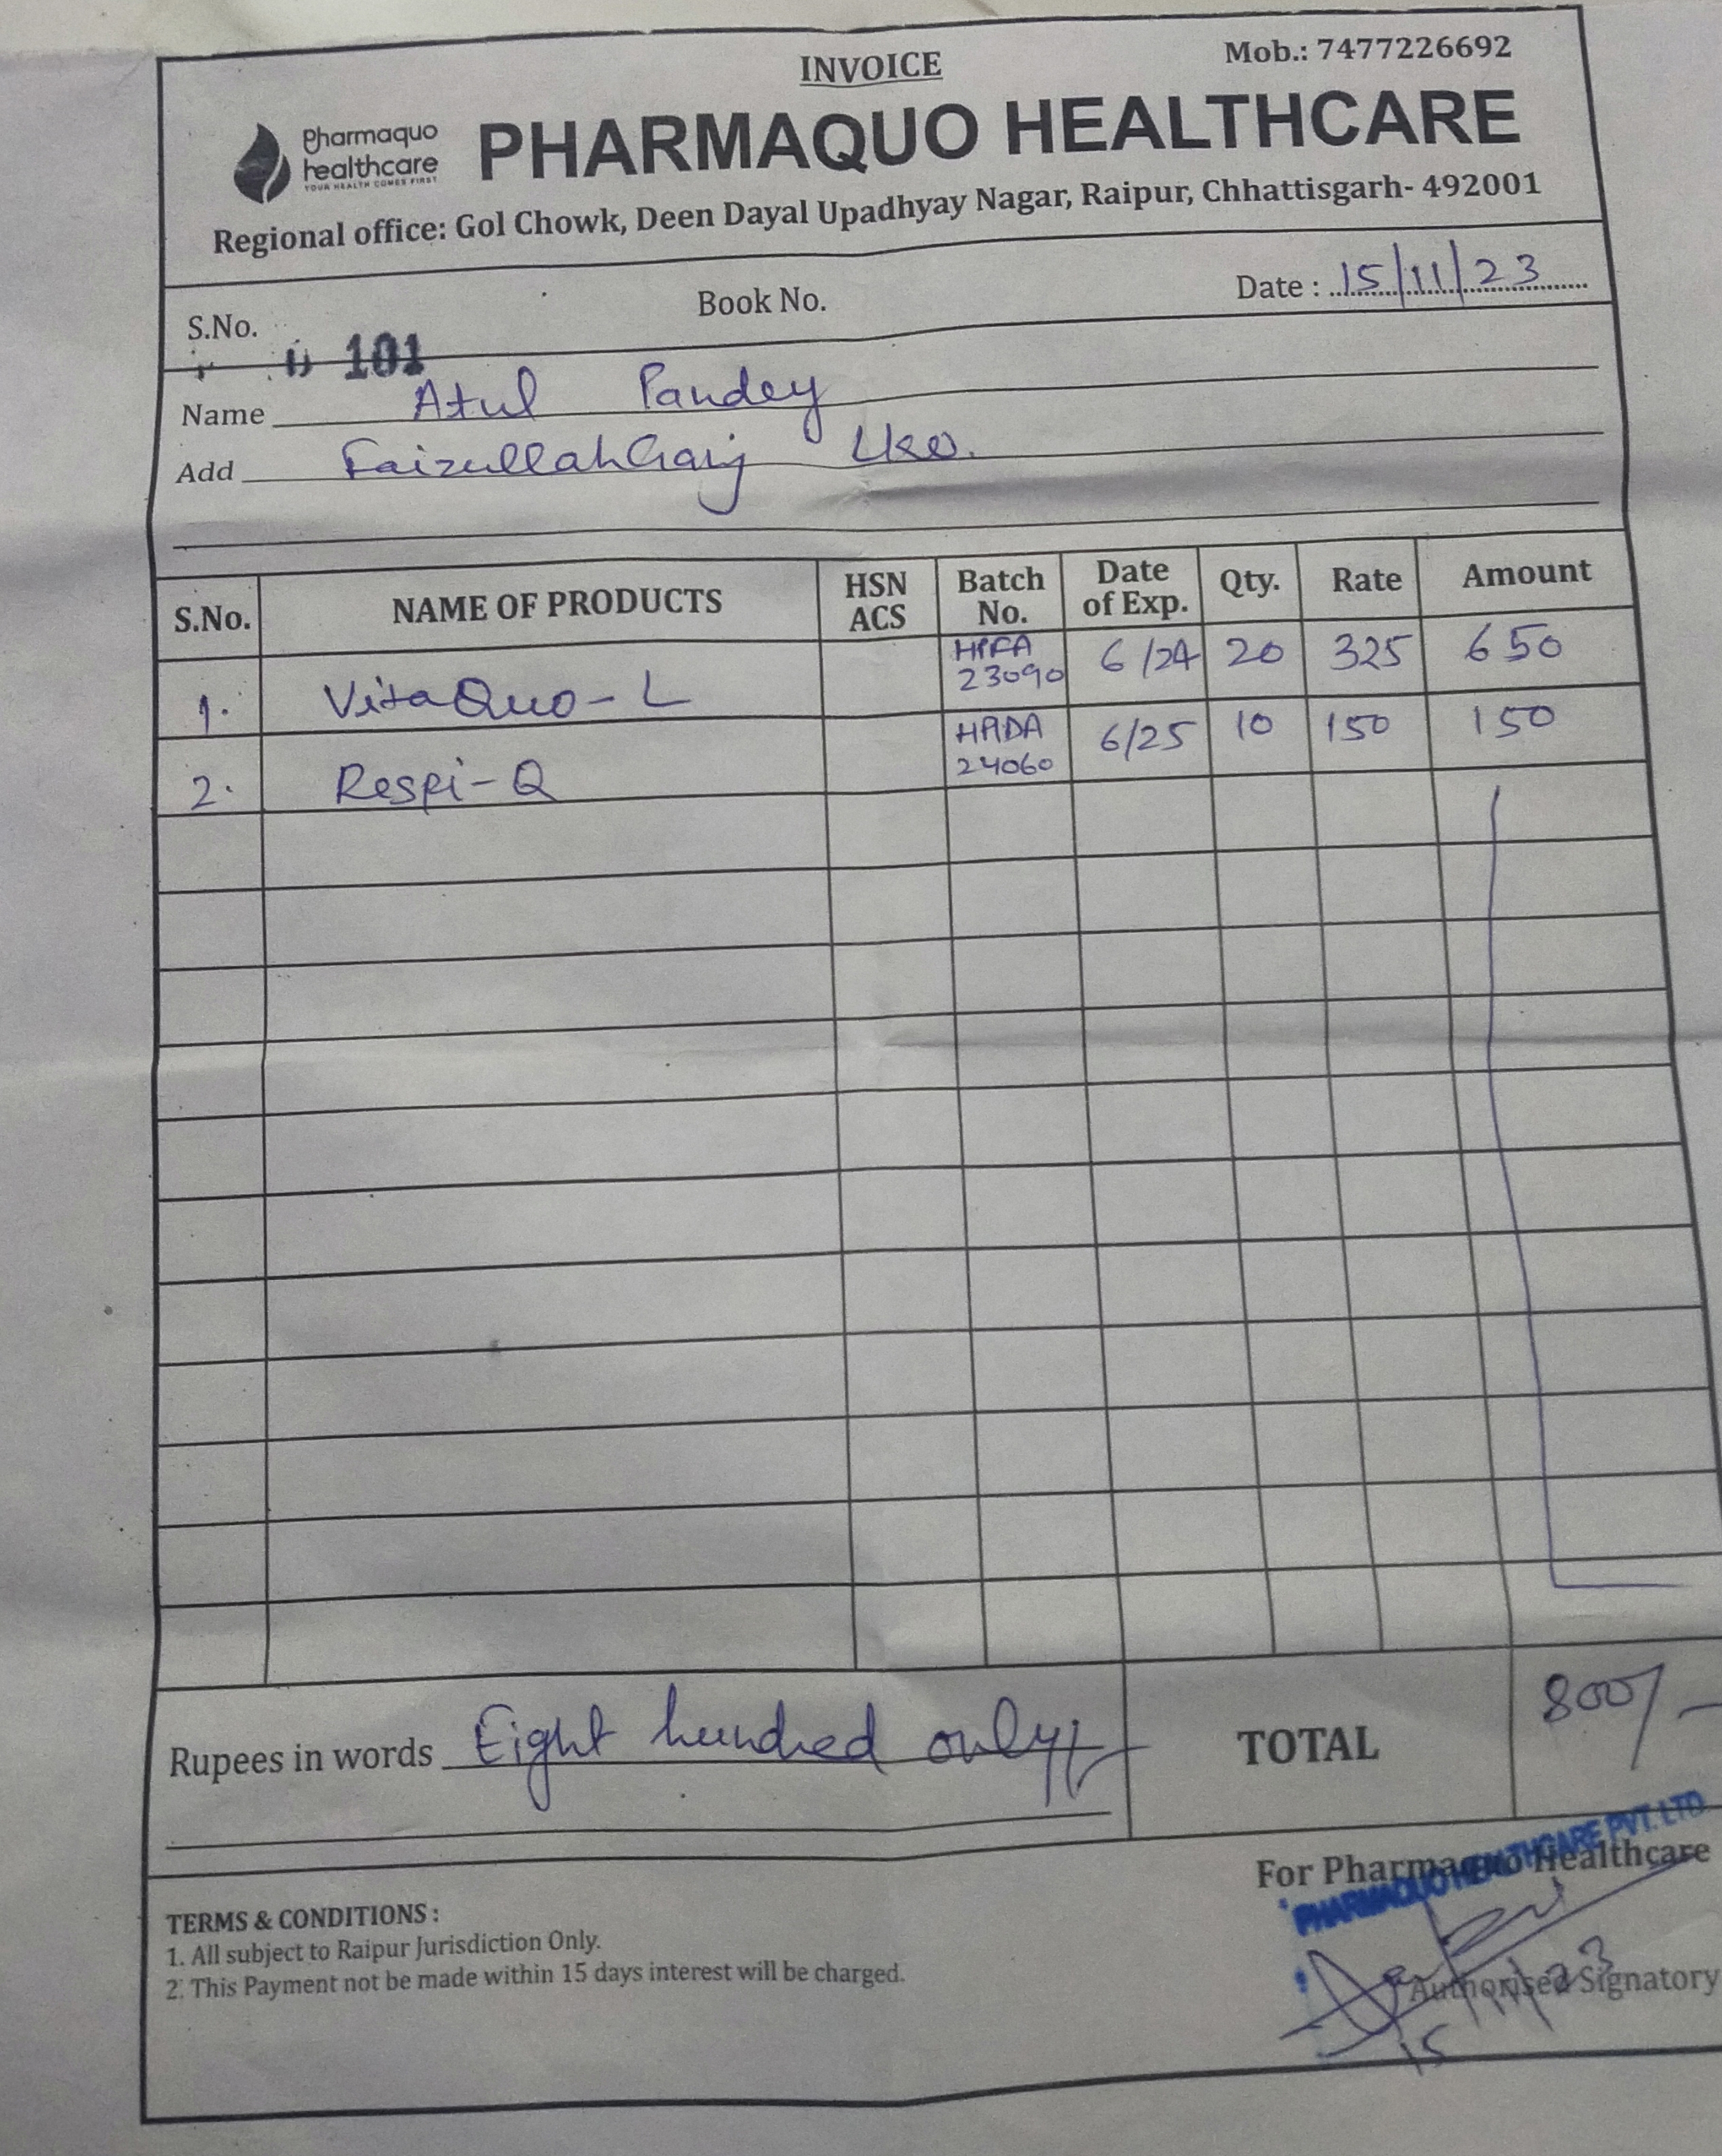 INVOICE
Mob.: 7477226692
Pharmaquo
healthcare
YOUR HEALTH COMES FIRST
PHARMAQUO HEALTHCARE
Regional office: Gol Chowk, Deen Dayal Upadhyay Nagar, Raipur, Chhattisgarh- 492001
S.No. Book No. Date : 15/11/23
101
Name Atul Pandey
Add FaizullahGanj Lko.
S.No. NAME OF PRODUCTS HSN ACS Batch No. Date of Exp. Qty. Rate Amount
1. VitaQuo-L 23090 6/24 20 325 650
2. Respi-Q 24060 6/25 10 150 150
Rupees in words Eight hundred only/- TOTAL 800/-
For Pharmaquo Healthcare
PHARMAQUO HEALTHCARE PVT. LTD.
TERMS & CONDITIONS :
1. All subject to Raipur Jurisdiction Only.
2. This Payment not be made within 15 days interest will be charged.
Authorised Signatory
15/11/23